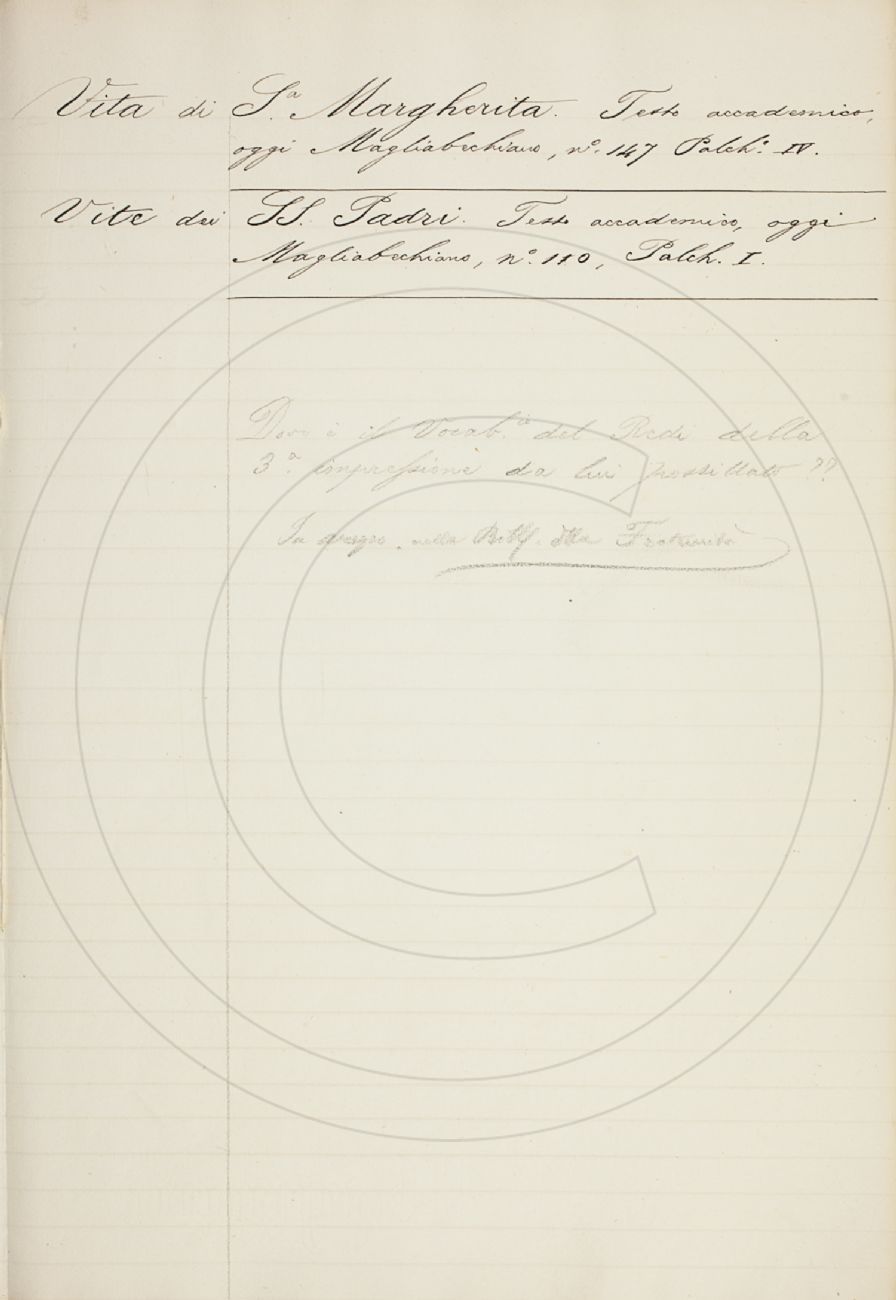 Vita di Sª. Margherita. Testo accademico,
oggi Magliabechiano, nº. 147 Palchº. IV.
Vite dei SS. Padri. Testo accademico, oggi
Magliabechiano, nº. 110, Palch. I.
Dov' è il Vocab.io del Redi della
3ª. impressione da lui postillato ??
In Arezzo nella Bibl. della Fraternità